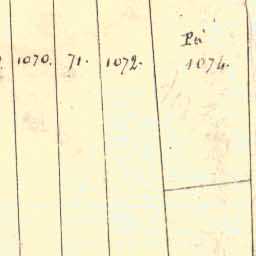 Pů
1070. 71. 1072. 1074.